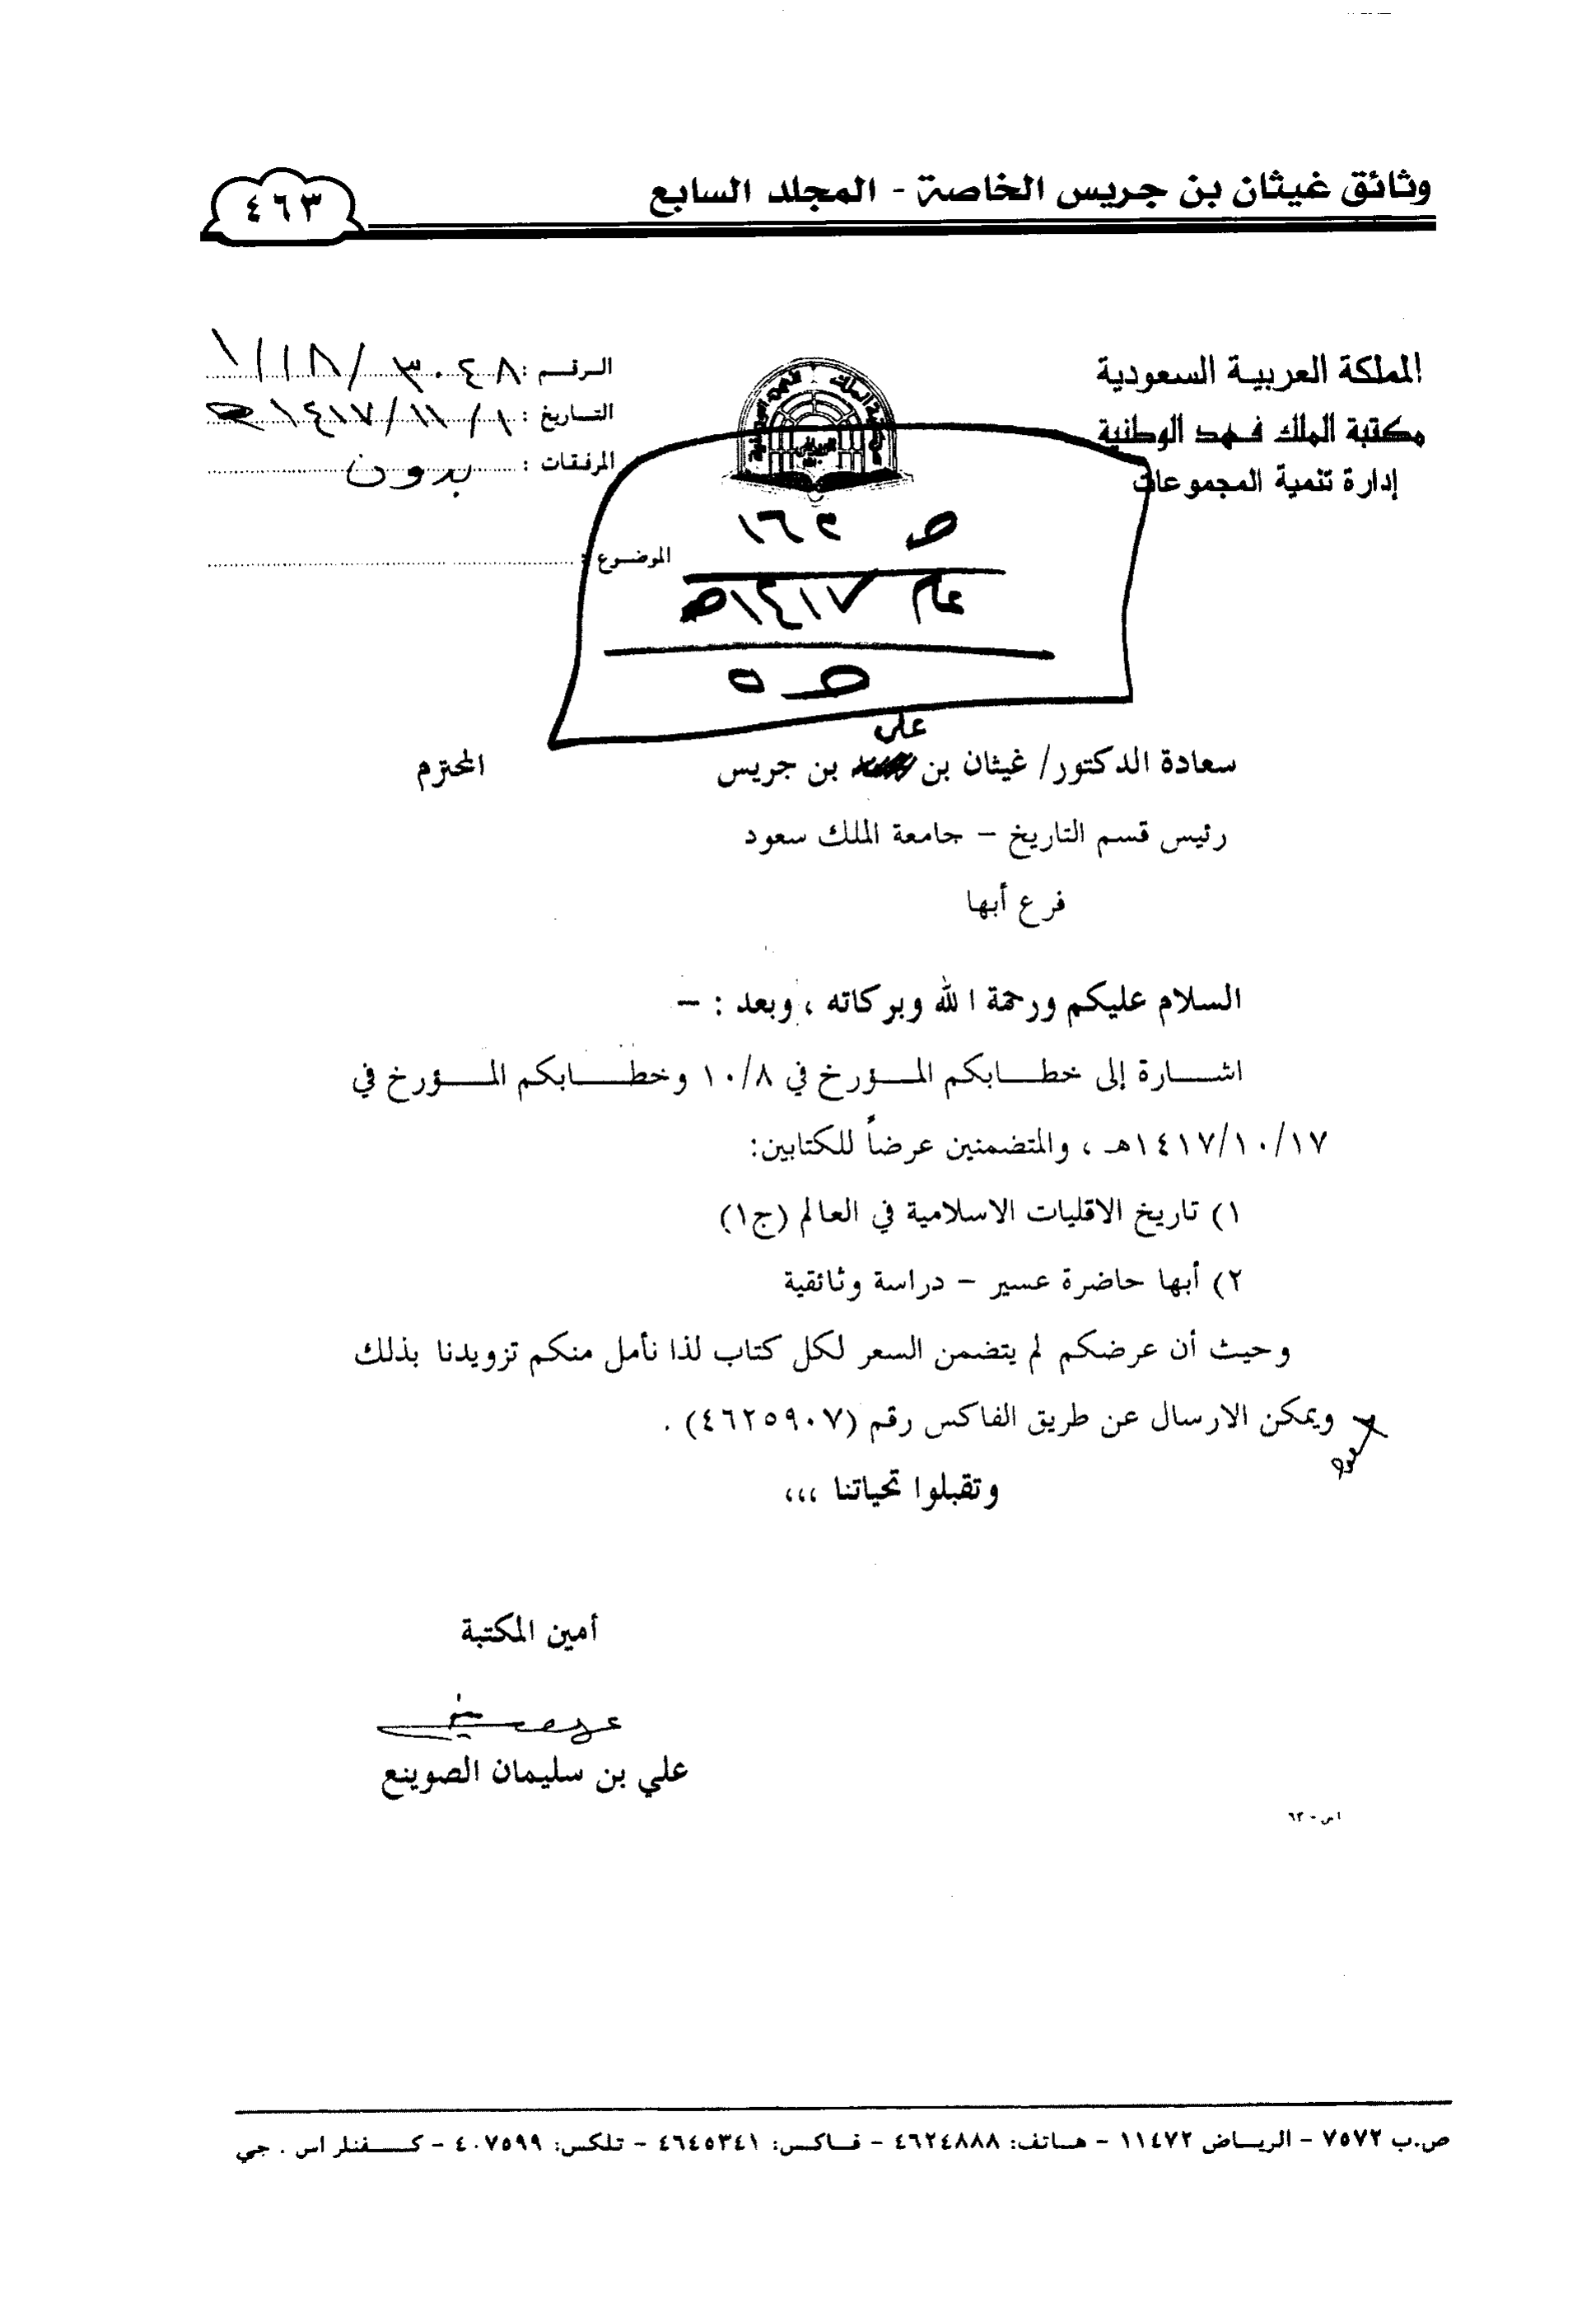 وثائق غيثان بن جريس الخاصة - المجلد السابع
٤٦٣
المملكة العربية السعودية
مكتبة الملك فهد الوطنية
إدارة تنمية المجموعات
الرقم :
التاريخ : ١/١١/١٤١٧هـ
المرفقات : بدون
الموضوع :
عام ١٤١٧هـ
ص ٥
علي
سعادة الدكتور/ غيثان بن بن جريس المحترم
رئيس قسم التاريخ – جامعة الملك سعود
فرع أبها
السلام عليكم ورحمة الله وبركاته ، وبعد : –
اشارة إلى خطابكم المؤرخ في ١٠/٨ وخطابكم المؤرخ في
١٤١٧/١٠/١٧هـ ، والمتضمنين عرضاً للكتابين:
١) تاريخ الاقليات الاسلامية في العالم (ج١)
٢) أبها حاضرة عسير – دراسة وثائقية
وحيث أن عرضكم لم يتضمن السعر لكل كتاب لذا نأمل منكم تزويدنا بذلك
ويمكن الارسال عن طريق الفاكس رقم (٤٦٢٥٩٠٧) .
وتقبلوا تحياتنا ،،،
أمين المكتبة
علي بن سليمان الصوينع
اس - ٦٣
ص.ب ٧٥٧٢ – الرياض ١١٤٧٢ – هاتف: ٤٦٢٤٨٨٨ – فاكس: ٤٦٤٥٣٤١ – تلكس: ٤٠٧٥٩٩ – كفنلر اس . جي